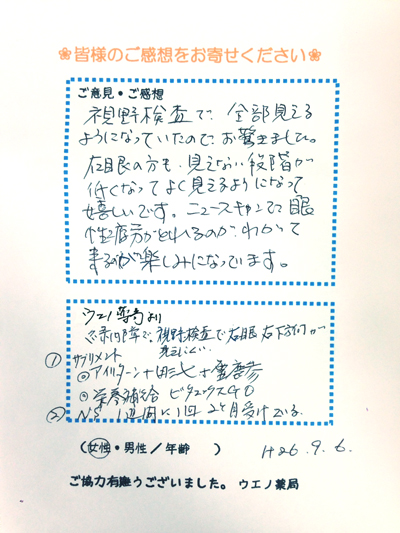 ❀皆様のご感想をお寄せください❀
ご意見・ご感想
視野検査で、全部見える
ようになっていたので、お驚きました。
右目眼の方も、見えない段階が
低くなってよく見えるようになって
嬉しいです。ニュースキャンで眼
性疲労がとれるのが、わかって
来るのが楽しみになっています。
ウエノ専香より
緑内障で、視野検査で右眼右下方向が
見えにくい。
① サプリメント
◎アイリターン+田七+
◎栄養補給 ビタエックスGO
② N.S 1週間に1回 2ヶ月受けている。
(女性・男性/年齢 ) H26.9.6.
ご協力有難うございました。 ウエノ薬局